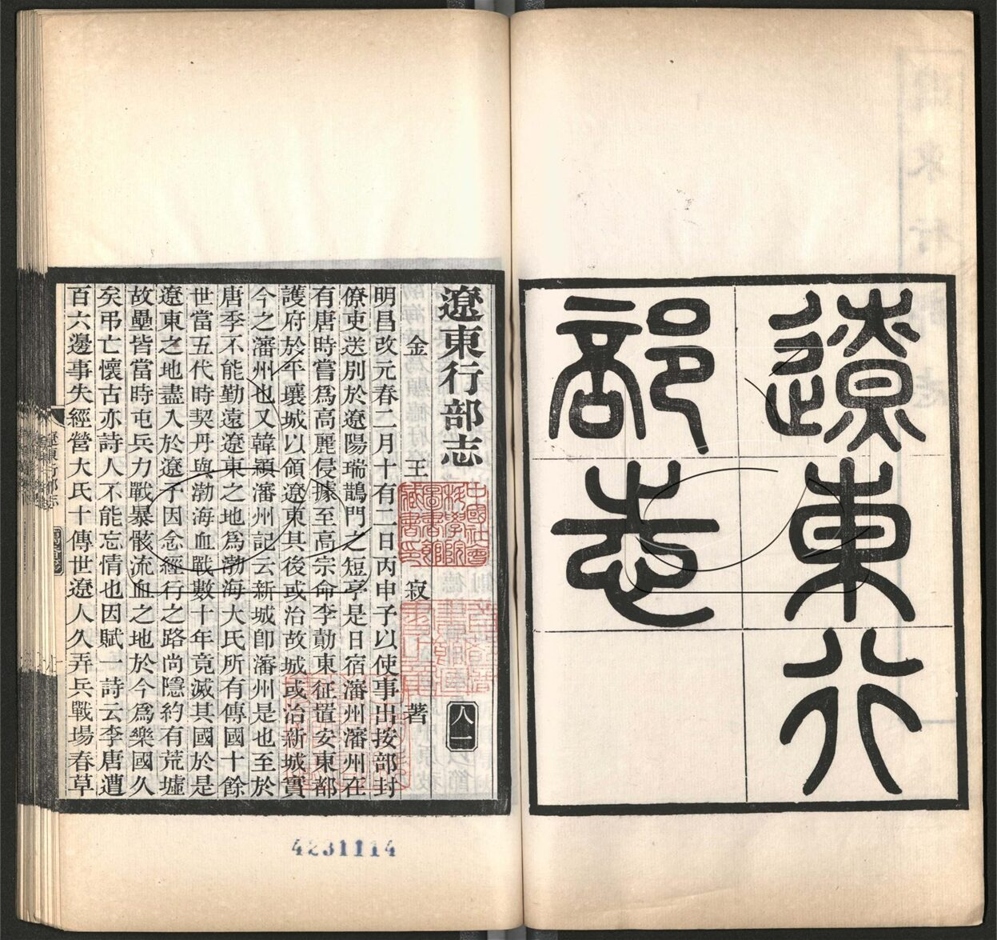 遼東行
部志
遼東行部志
金 王 寂 著
明昌改元春二月十有二日丙申予以使事出按部封
僚吏送別於遼陽瑞鵲門之短亭是日宿瀋州瀋州在
有唐時嘗爲高麗侵據至高宗命李勣東征置安東都
護府於平壤城以領遼東其後或治故城或治新城實
今之瀋州也又韓穎瀋州記云新城卽瀋州是也至於
唐季不能勤遠遼東之地爲渤海大氏所有傳國十餘
世當五代時契丹與渤海血戰數十年竟滅其國於是
遼東之地盡入於遼予因念經行之路尚隱約有荒墟
故壘皆當時屯兵力戰暴骸流血之地於今爲樂國久
矣弔亡懷古亦詩人不能忘情也因賦一詩云李唐遭
百六邊事失經營大氏十傳世遼人久弄兵戰場春草
八一
中國社會
科學院
圖書館
藏書印
遼東行部志
4231114